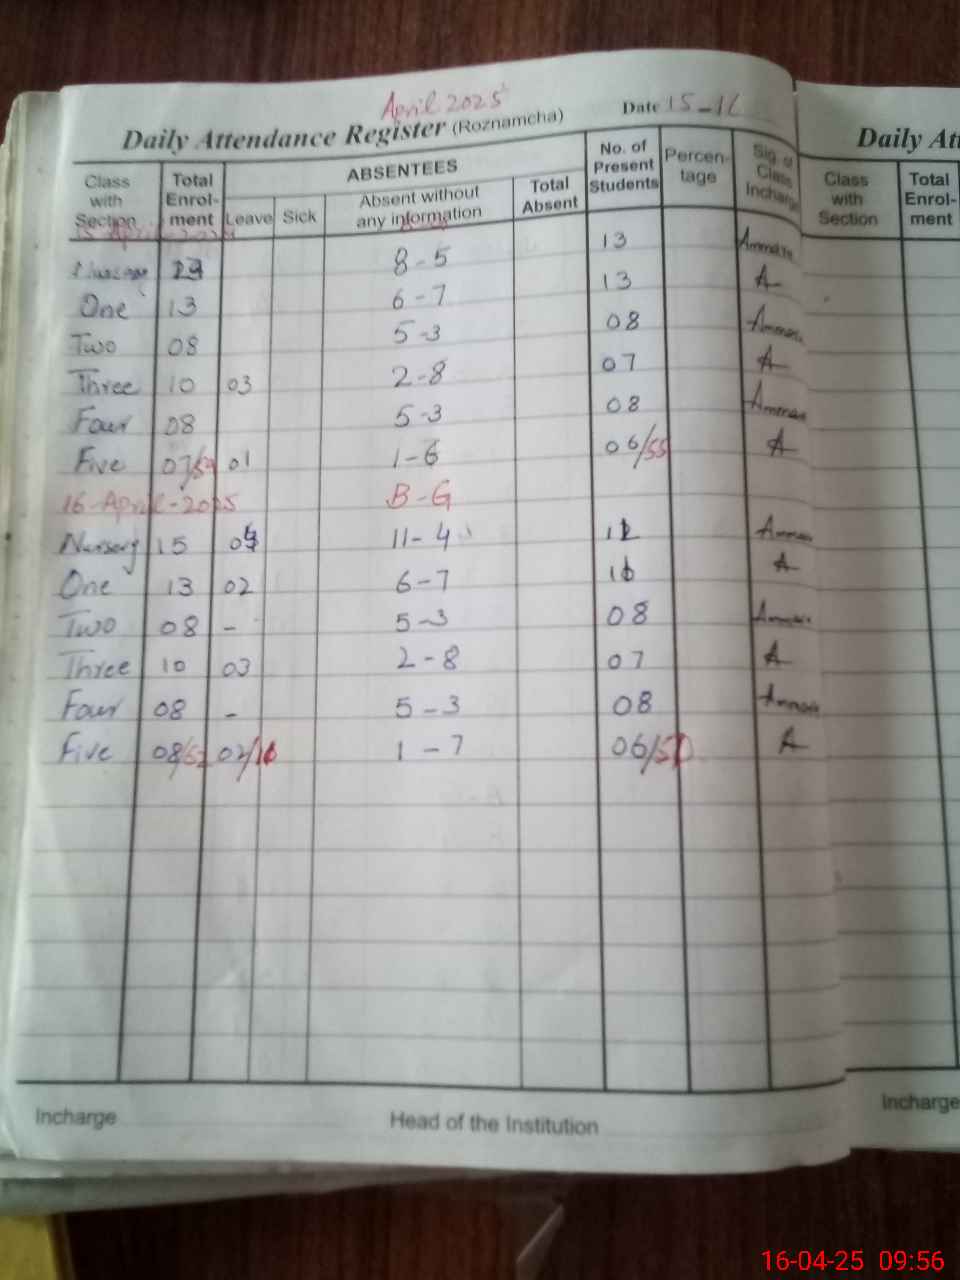 April 2025
Daily Attendance Register (Roznamcha) Date 15-16
Class with Section Total Enrol-ment ABSENTEES No. of Present Students Percen-tage Sig. of Class Incharge
Leave Sick Absent without any information Total Absent
15 April
8-5 13
One 13 6-7 13 A
Two 08 5-3 08
Three 10 03 2-8 07 A
Four 08 5-3 08
Five 07 01 1-6 06/55 A
16-April-2025 B-G
Nursery 15 11-4
One 13 02 6-7 A
Two 08 - 5-3 08
Three 10 03 2-8 07 A
Four 08 - 5-3 08
Five 08 02 1-7 06 A
Incharge Head of the Institution
Daily Att
Class with Section Total Enrol-ment
Incharge
16-04-25 09:56